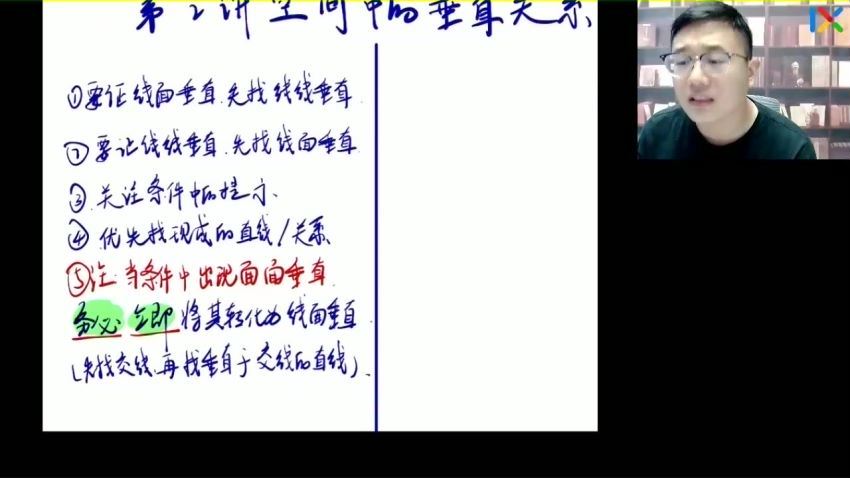 第2讲空间中的垂直关系
①要证线面垂直.先找线线垂直
②要证线线垂直.先找线面垂直
③关注条件中的提示
④优先找现成的直线/关系
⑤注:当条件中出现面面垂直
务必 立即 将其转化为线面垂直
(先找交线.再找垂直于交线的直线).